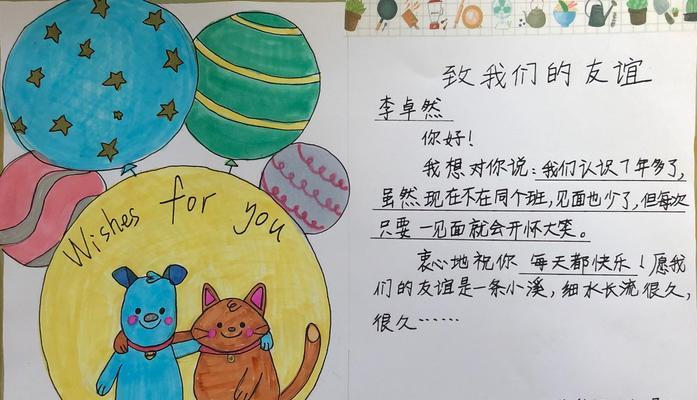 Wishes for you
致我们的友谊
李卓然
你好！
我想对你说：我们认识7年多了，
虽然现在不在同个班，见面也少了，但每次
只要一见面就会开怀大笑。
衷心地祝你 每天都快乐！愿我
们的友谊是一条小溪，细水长流很久，
很久……